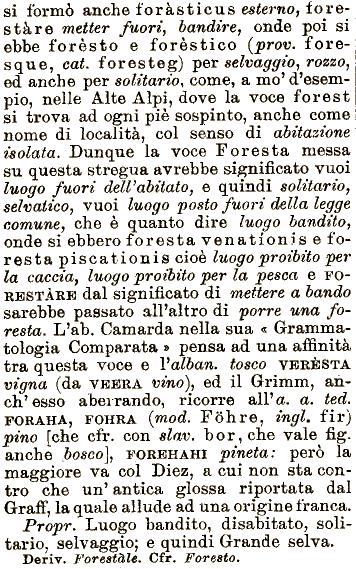 si formò anche foràsticus esterno, fore-
stàre metter fuori, bandire, onde poi si
ebbe forèsto e forèstico (prov. fore-
sque, cat. foresteg) per selvaggio, rozzo,
ed anche per solitario, come, a mo' d'esem-
pio, nelle Alte Alpi, dove la voce forest
si trova ad ogni piè sospinto, anche come
nome di località, col senso di abitazione
isolata. Dunque la voce Foresta messa
su questa stregua avrebbe significato vuoi
luogo fuori dell'abitato, e quindi solitario,
selvatico, vuoi luogo posto fuori della legge
comune, che è quanto dire luogo bandito,
onde si ebbero foresta venationis e fo-
resta piscationis cioè luogo proibito per
la caccia, luogo proibito per la pesca e FO-
RESTÀRE dal significato di mettere a bando
sarebbe passato all'altro di porre una fo-
resta. L'ab. Camarda nella sua « Gramma-
tologia Comparata » pensa ad una affinità
tra questa voce e l'alban. tosco VERÈSTA
vigna (da VEERA vino), ed il Grimm, an-
ch' esso aberrando, ricorre all'a. a. ted.
FORAHA, FOHRA (mod. Föhre, ingl. fir)
pino [che cfr. con slav. bor, che vale fig.
anche bosco], FOREHAHI pineta: però la
maggiore va col Diez, a cui non sta con-
tro che un' antica glossa riportata dal
Graff, la quale allude ad una origine franca.
Propr. Luogo bandito, disabitato, soli-
tario, selvaggio; e quindi Grande selva.
Deriv. Forestàle. Cfr. Foresto.